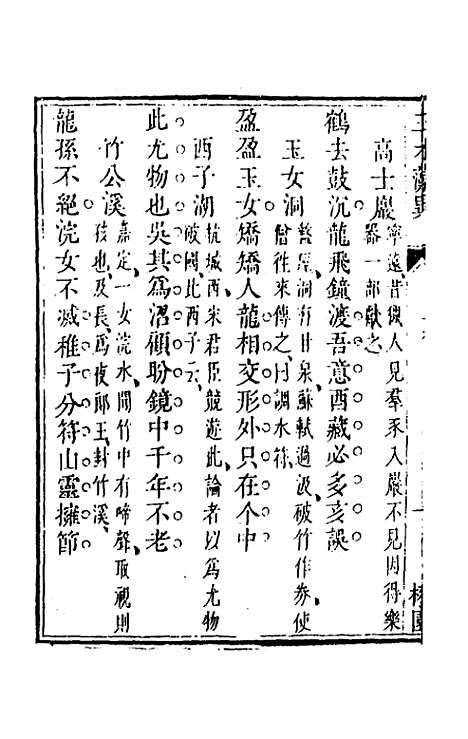 高士巖
寧遠昔獠人見羣豕入巖不見因得樂
器一部獻之
鶴去鼓沉龍飛鐘渡吾意酉藏必多亥誤
玉女洞
盩厔洞有甘泉蘇軾過汲破竹作券使
僧往來傳之曰調水符
盈盈玉女矯矯人龍相交形外只在个中
西子湖
杭城西宋君臣競遊此論者以爲尤物
破國比西子云
此尤物也吳其爲沼顧盼鏡中千年不老
竹公溪
嘉定一女浣水聞竹中有啼聲取視則
孩也及長爲夜郎王封竹溪
龍孫不絕浣女不滅稚子分符山靈擁節